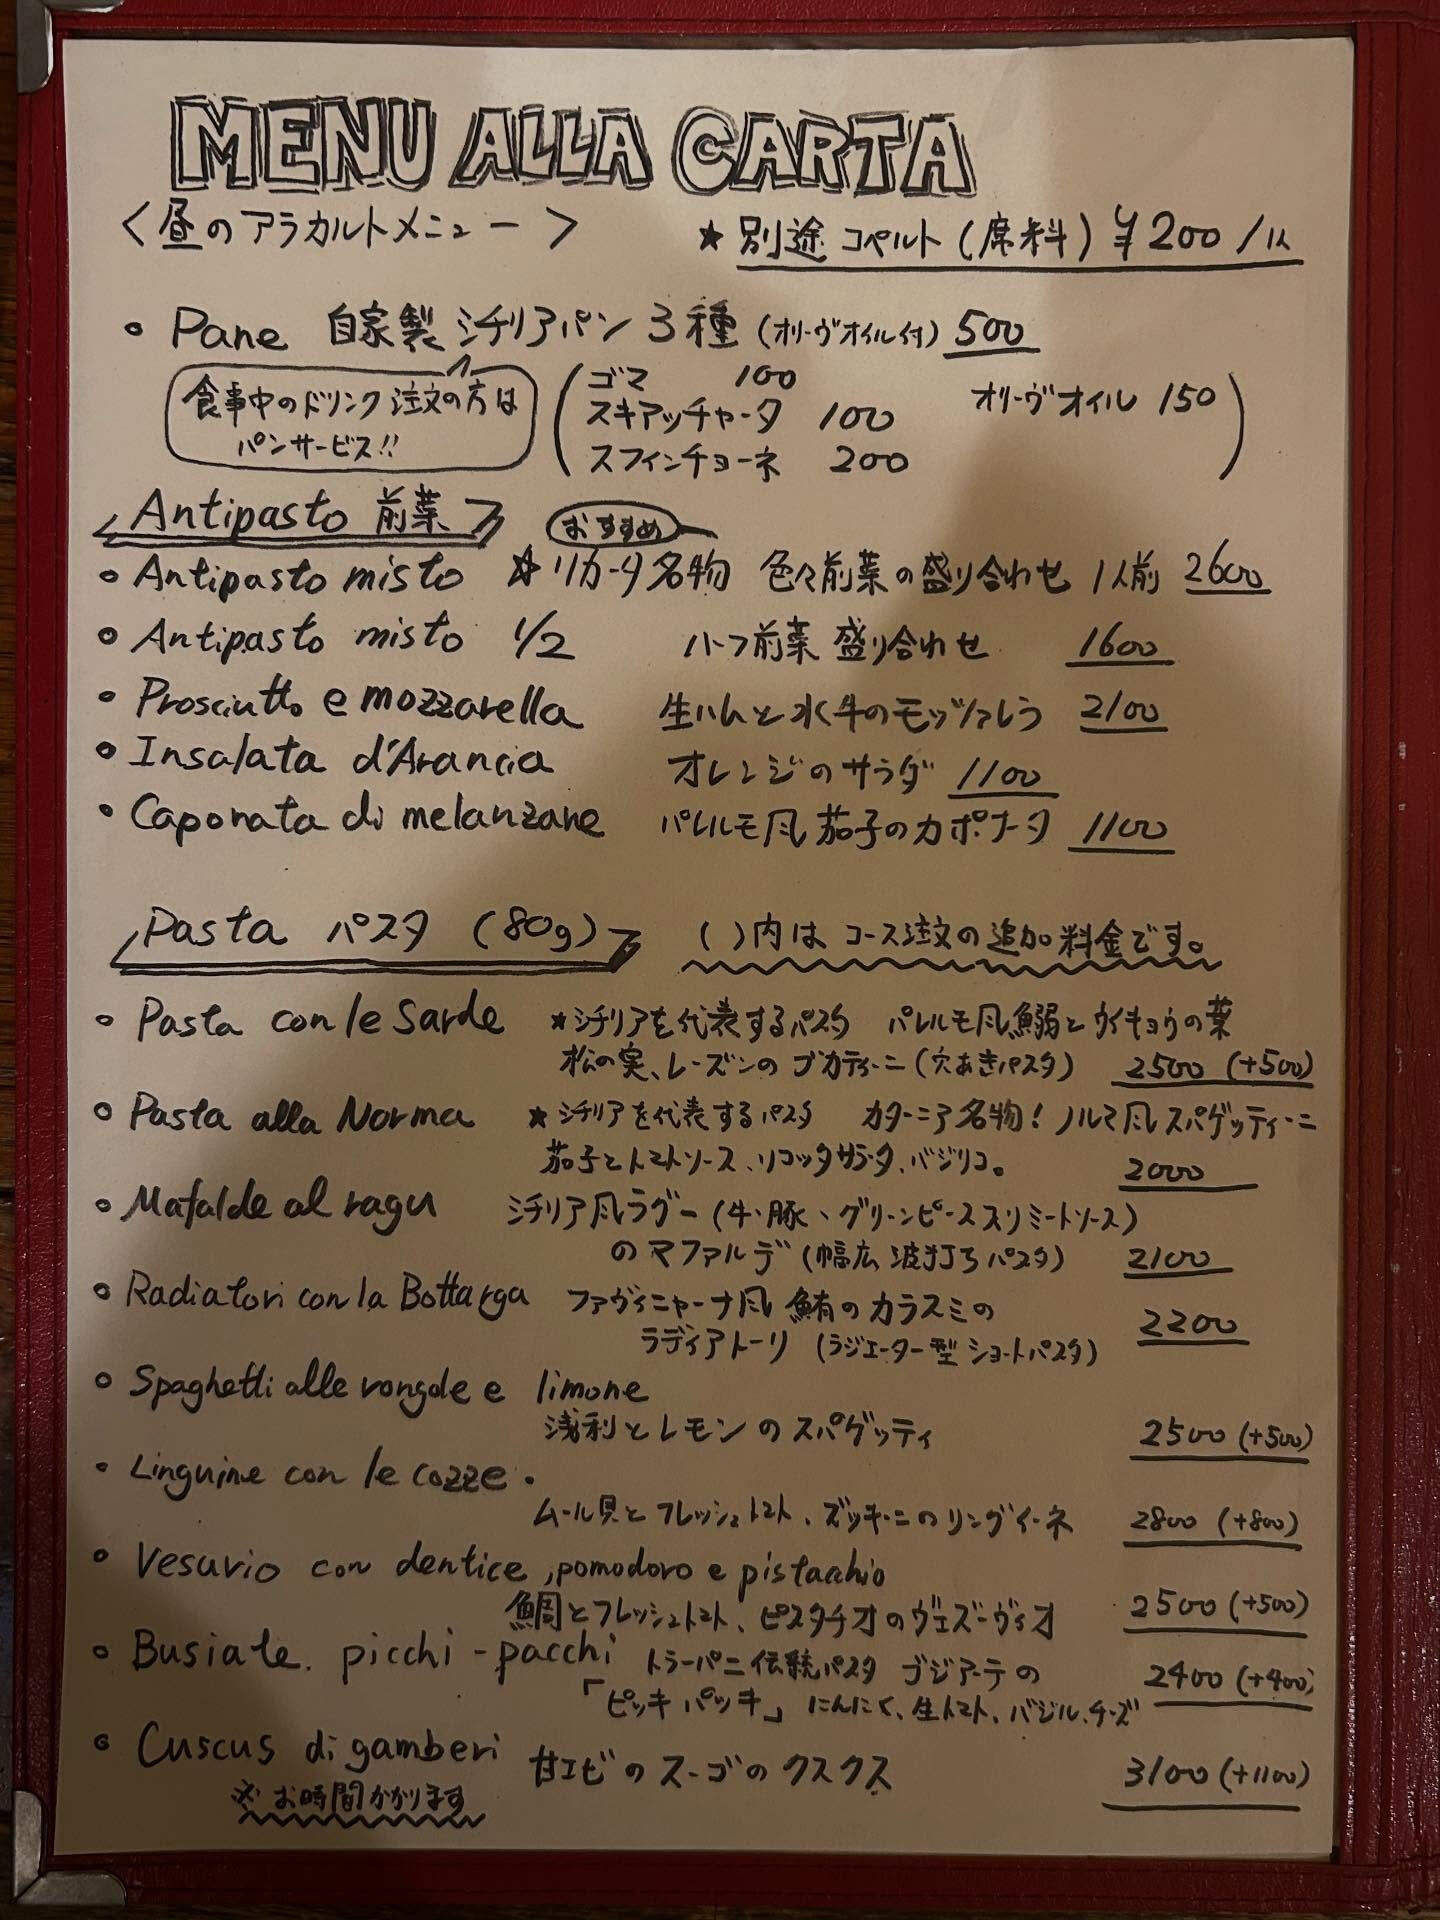 MENU ALLA CARTA
<昼のアラカルトメニュー>
★別途 コペルト(席料)¥200/1人
• Pane 自家製 シチリアパン 3種 (オリーヴオイル付) 500
食事中のドリンク注文の方は
パンサービス!!
ゴマ 100
スキアッチャータ 100
スフィンチョーネ 200
オリーヴオイル 150
Antipasto 前菜
おすすめ
• Antipasto misto ☆リカータ名物 色々前菜の盛り合わせ 1人前 2600
• Antipasto misto 1/2 ハーフ前菜 盛り合わせ 1600
• Prosciutto e mozzarella 生ハムと水牛のモッツァレラ 2100
• Insalata d'Arancia オレンジのサラダ 1100
• Caponata di melanzane パレルモ風 茄子のカポナータ 1100
Pasta パスタ (80g)
( )内は コース注文の追加料金です。
• Pasta con le Sarde ★シチリアを代表するパスタ パレルモ風 鰯とウイキョウの葉
松の実、レーズンの ブカティーニ(穴あきパスタ) 2500 (+500)
• Pasta alla Norma ★シチリアを代表するパスタ カターニア名物! ノルマ風 スパゲッティーニ
茄子とトマトソース、リコッタサラータ、バジリコ。 2000
• Mafalde al ragu シチリア風ラグー(牛・豚、グリーンピース入りミートソース)
のマファルデ(幅広 波打ちパスタ) 2100
• Radiatori con la Bottarga ファヴィニャーナ風 鮪のカラスミの
ラディアトーリ (ラジエーター型 ショートパスタ) 2200
• Spaghetti alle vongole e limone
浅利とレモンのスパゲッティ 2500 (+500)
• Linguine con le cozze.
ムール貝とフレッシュトマト、ズッキーニのリングイーネ 2800 (+800)
• Vesuvio con dentice, pomodoro e pistacchio
鯛とフレッシュトマト、ピスタチオのヴェズーヴィオ 2500 (+500)
• Busiate. picchi-pacchi トラーパニ伝統パスタ ブジアーテの
「ピッキ パッキ」にんにく、生トマト、バジル、チーズ 2400 (+400)
• Cuscus di gamberi 甘エビのスーゴのクスクス 3100 (+1100)
※お時間かかります